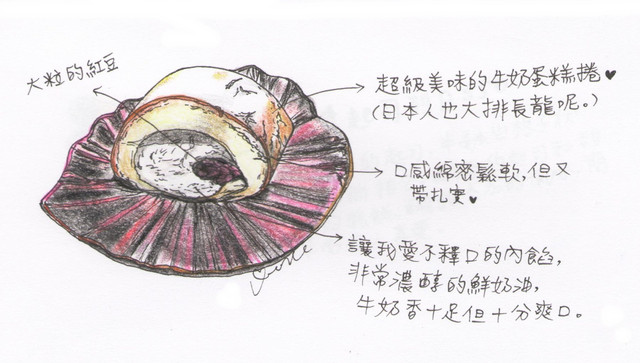 大粒的紅豆
超級美味的牛奶蛋糕捲♥
(日本人也大排長龍呢。)
口感綿密鬆軟,但又
帶扎實♥
讓我愛不釋口的內餡,
非常濃醇的鮮奶油,
牛奶香十足但十分爽口。